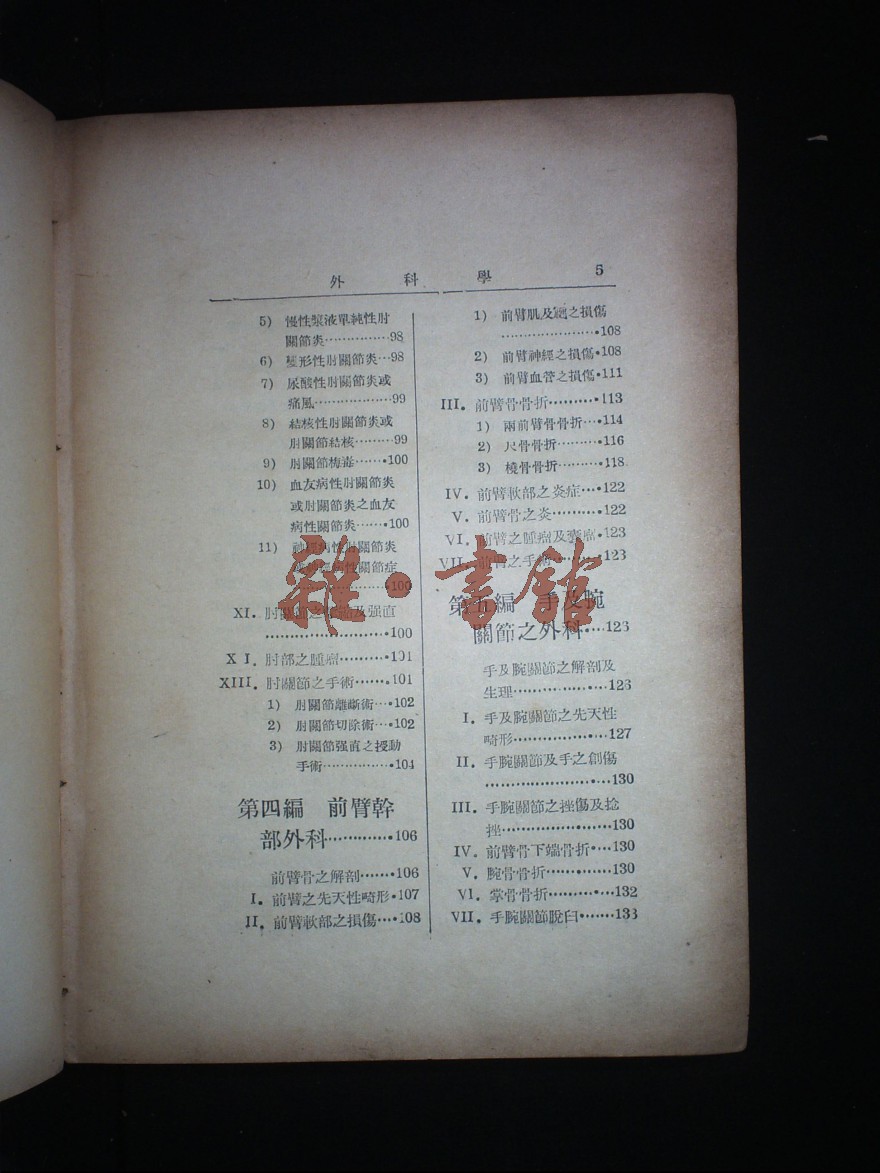 外 科 學 5
5) 慢性漿液單純性肘
關節炎……………98
6) 變形性肘關節炎…98
7) 尿酸性肘關節炎或
痛風…………………99
8) 結核性肘關節炎或
肘關節結核………99
9) 肘關節梅毒……100
10) 血友病性肘關節炎
或肘關節炎之血友
病性關節炎……100
11) 神經病性肘關節炎
神經病性關節症
100
XI. 肘關節之 及强直
……………………100
X I. 肘部之腫瘤………101
XIII. 肘關節之手術……101
1) 肘關節離斷術…102
2) 肘關節切除術…102
3) 肘關節强直之授動
手術……………104
第四編 前臂幹
部外科…………106
前臂骨之解剖……106
I. 前臂之先天性畸形·107
II. 前臂軟部之損傷…108
1) 前臂肌及腱之損傷
……………………108
2) 前臂神經之損傷·108
3) 前臂血管之損傷·111
III. 前臂骨骨折………113
1) 兩前臂骨骨折…114
2) 尺骨骨折………116
3) 橈骨骨折………118
IV. 前臂軟部之炎症…122
V. 前臂骨之炎………122
VI. 前臂之腫瘤及 瘤·123
VII. 前臂之手術………123
第五編 手及腕
關節之外科…123
手及腕關節之解剖及
生理………………123
I. 手及腕關節之先天性
畸形………………127
II. 手腕關節及手之創傷
……………………130
III. 手腕關節之挫傷及捻
挫…………………130
IV. 前臂骨下端骨折…130
V. 腕骨骨折…………130
VI. 掌骨骨折…………132
VII. 手腕關節脫臼……133
雜·書館